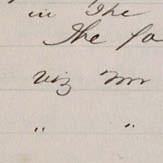 in the
The fa
viz Mr
" "